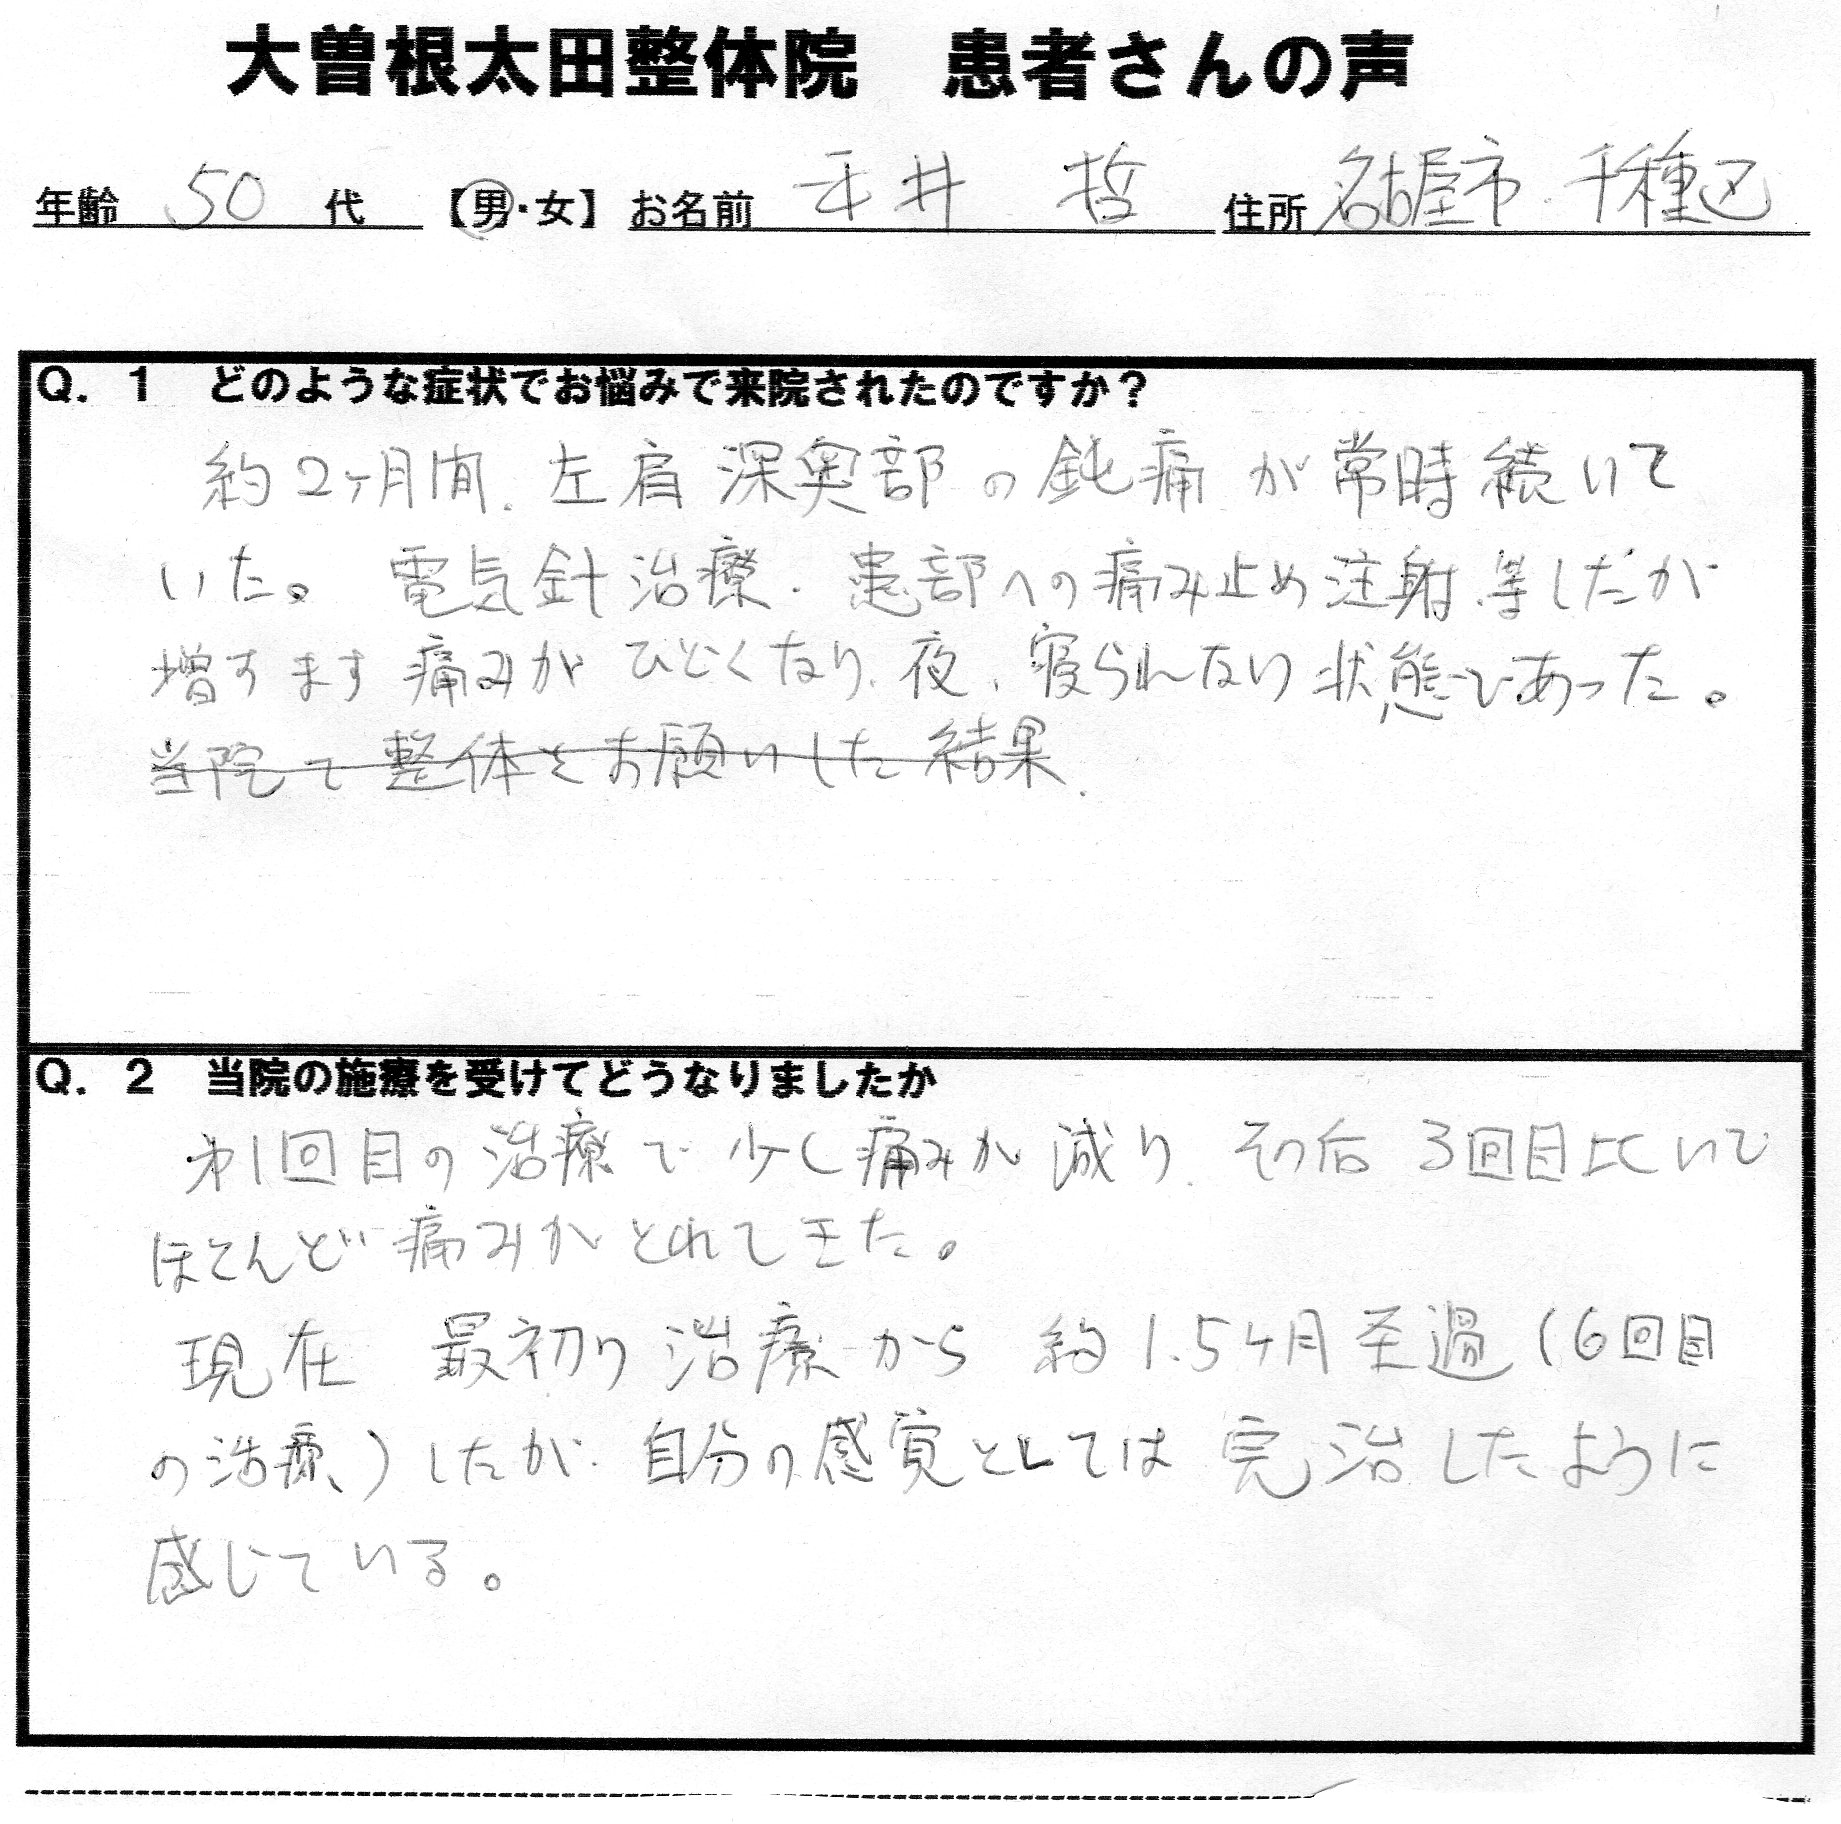 大曽根太田整体院　患者さんの声
年齢 50 代 【男・女】 お名前 平井 哲 住所 名古屋市 千種区
Q．1　どのような症状でお悩みで来院されたのですか？
約2ヶ月間、左肩深奥部の鈍痛が常時続いて
いた。電気針治療・患部への痛み止め注射等したが
増すます痛みがひどくなり、夜、寝られない状態であった。
当院で整体をお願いした結果、
Q．2　当院の施療を受けてどうなりましたか
第1回目の治療で少し痛みが減り、その后 3回目
ほとんど痛みがとれてきた。
現在 最初の治療から 約1.5ヶ月 過（6回目
の治療）したが、自分の感覚としては 完治したように
感じている。